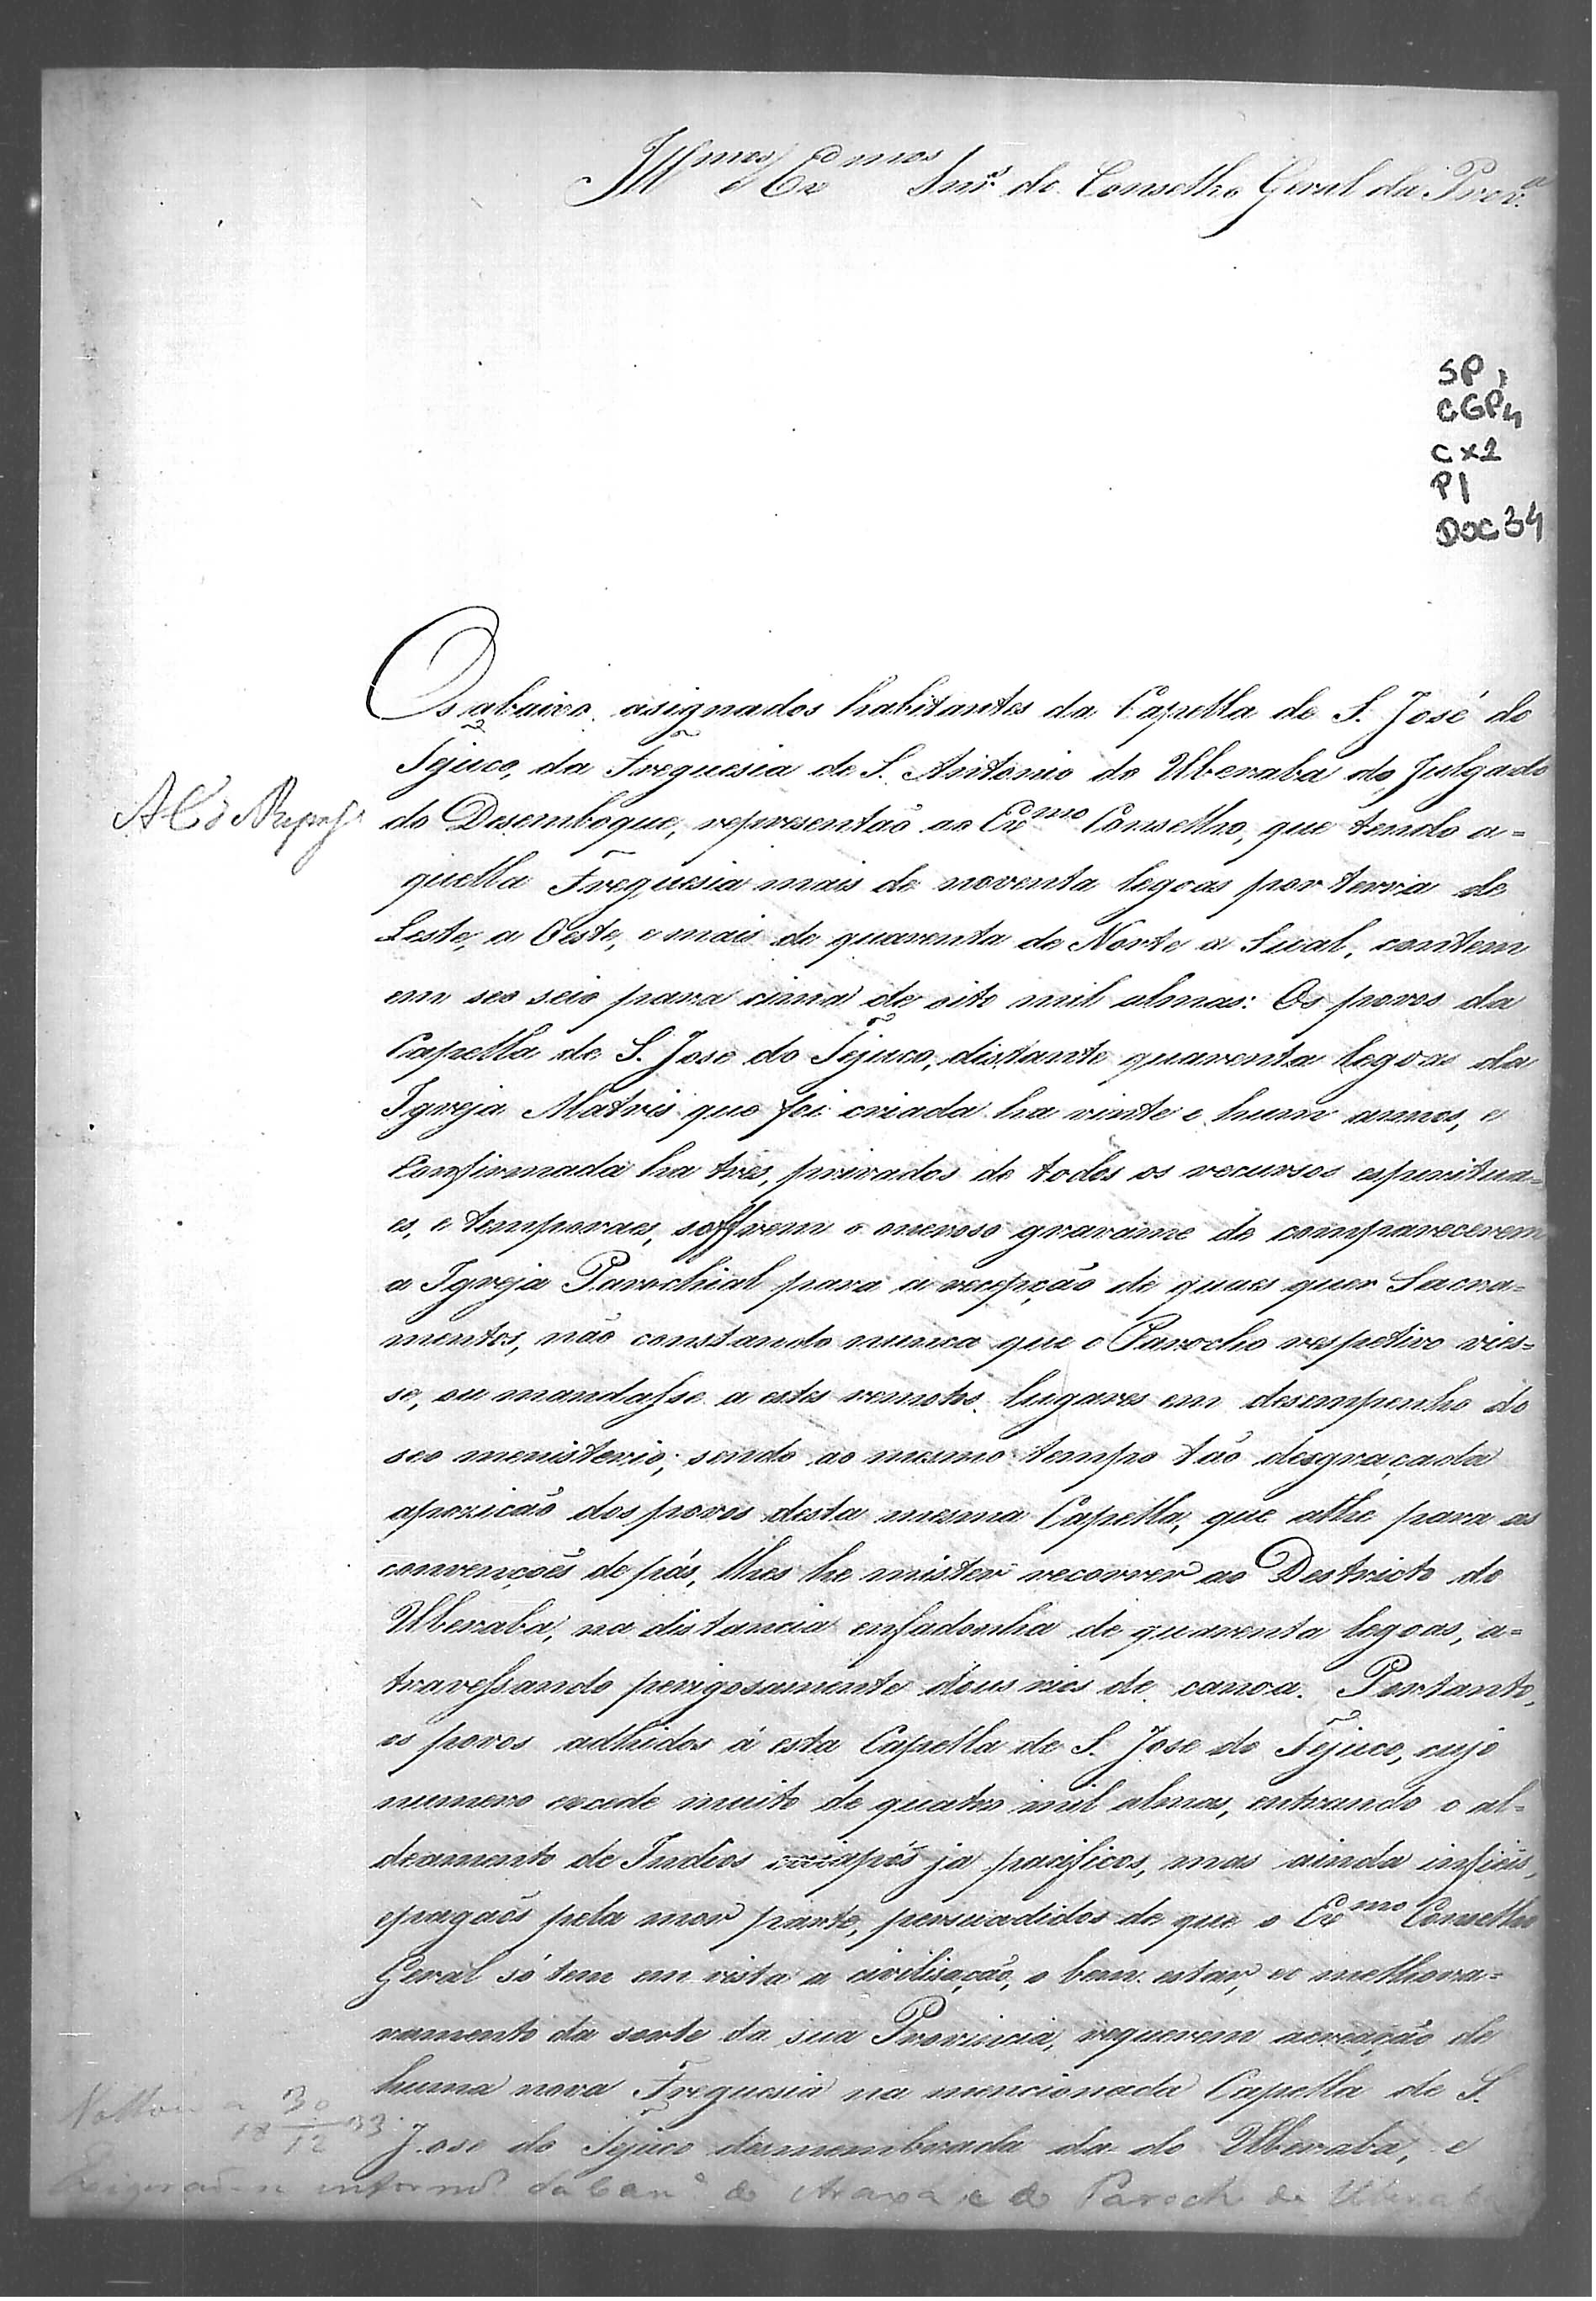 Ill^mos e Ex^mos Snr.^s do Conselho Geral da Prov.^a
SP 1
CGP4
Cx2
P1
DOC 34
Os abaixo asignados habitantes da Capella de S. José do
Tejuco, da Freguesia de S. Antonio do Uberaba do Julgado
do Desemboque, representaõ ao Ex^mo Conselho, que tendo a=
quella Freguesia mais de noventa legoas por terra de
Leste, a Oeste, e mais de quarenta de Norte a Sual, contem
em seo seio para cima de oito mil almas: Os povos da
Capella de S. Jose do Tejuco, distante quarenta legoas da
Igreja Matris que foi criada ha vinte e hum annos, e
Confirmada ha tres, privados de todos os recursos espiritua=
es, e temporaes, soffrem o oneroso gravame de comparecerem
a Igreja Parochial para a recepção de quaes quer Sacra=
mentos, não constando nunca que o Parocho respetivo vies=
se, ou mandasse a estes remotos lugares em desempenho do
seo menisterio; sendo ao mesmo tempo tão desgraçada
apozicão dos povos desta mesma Capella, que athe para as
convenções de pás, lhes he mister recorrer ao Destricto do
Uberaba, na distancia enfadonha de quarenta legoas, a=
travessando perigosamente dous rios de canoa. Portanto,
os povos adhidos á esta Capella de S. Jose do Tejuco, cujo
numero excede muito de quatro mil almas, entrando o al=
deamento de Indios caiapós ja pacificos, mas ainda infieis,
epagaõs pela mor parte, persuadidos de que o Ex^mo Conselho
Geral só tem em vista a civilisação, o bem estar, e o melhora=
ramento da sorte da sua Provincia, requerem acreação de
huma nova Freguesia na mencionada Capella de S.
Jose do Tejuco desmembrada da do Uberaba, e
A C. d
30
18 12 33
da Cam.^a de Araxá e do Paroch de Uberaba